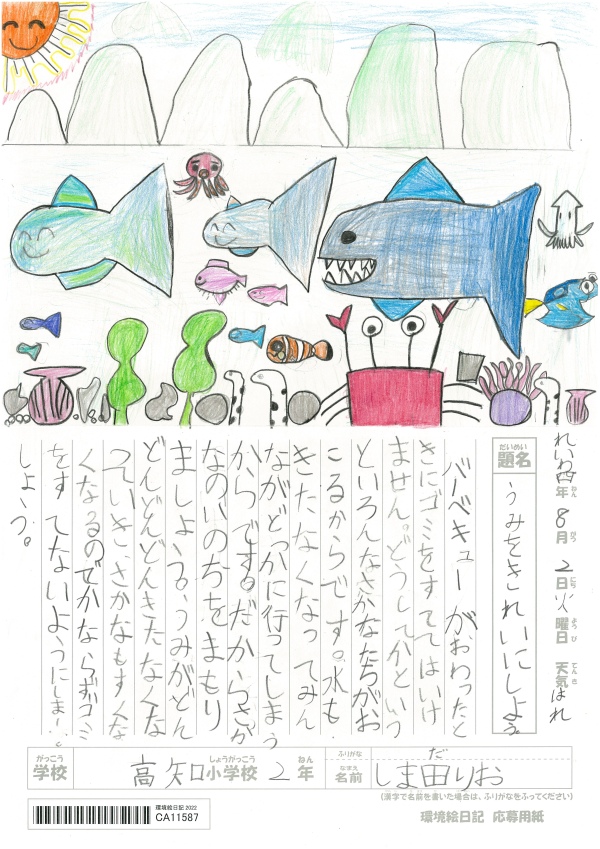 れいわ四年 8月 2日 火曜日 天気 はれ
ねん がつ にち ようび てんき
だいめい
題名
うみをきれいにしよう
バーベキューがおわったと
きにゴミをすててはいけ
ません。どうしてかという
といろんなさかなたちがお
こるからです。水も
きたなくなってみん
ながどっかに行ってしまう
からです。だからさか
なのいのちをまもり
ましょう。うみがどん
どんどんどんきたなくな
っていき、さかなもすくな
くなるのでかならずゴミ
をすてないようにしま
しょう。
がっこう しょうがっこう ねん
学校 高知小学校 2年
ふりがな だ
なまえ
名前 しま田りお
(漢字で名前を書いた場合は、ふりがなをふってください)
環境絵日記 2022
CA11587
環境絵日記 応募用紙